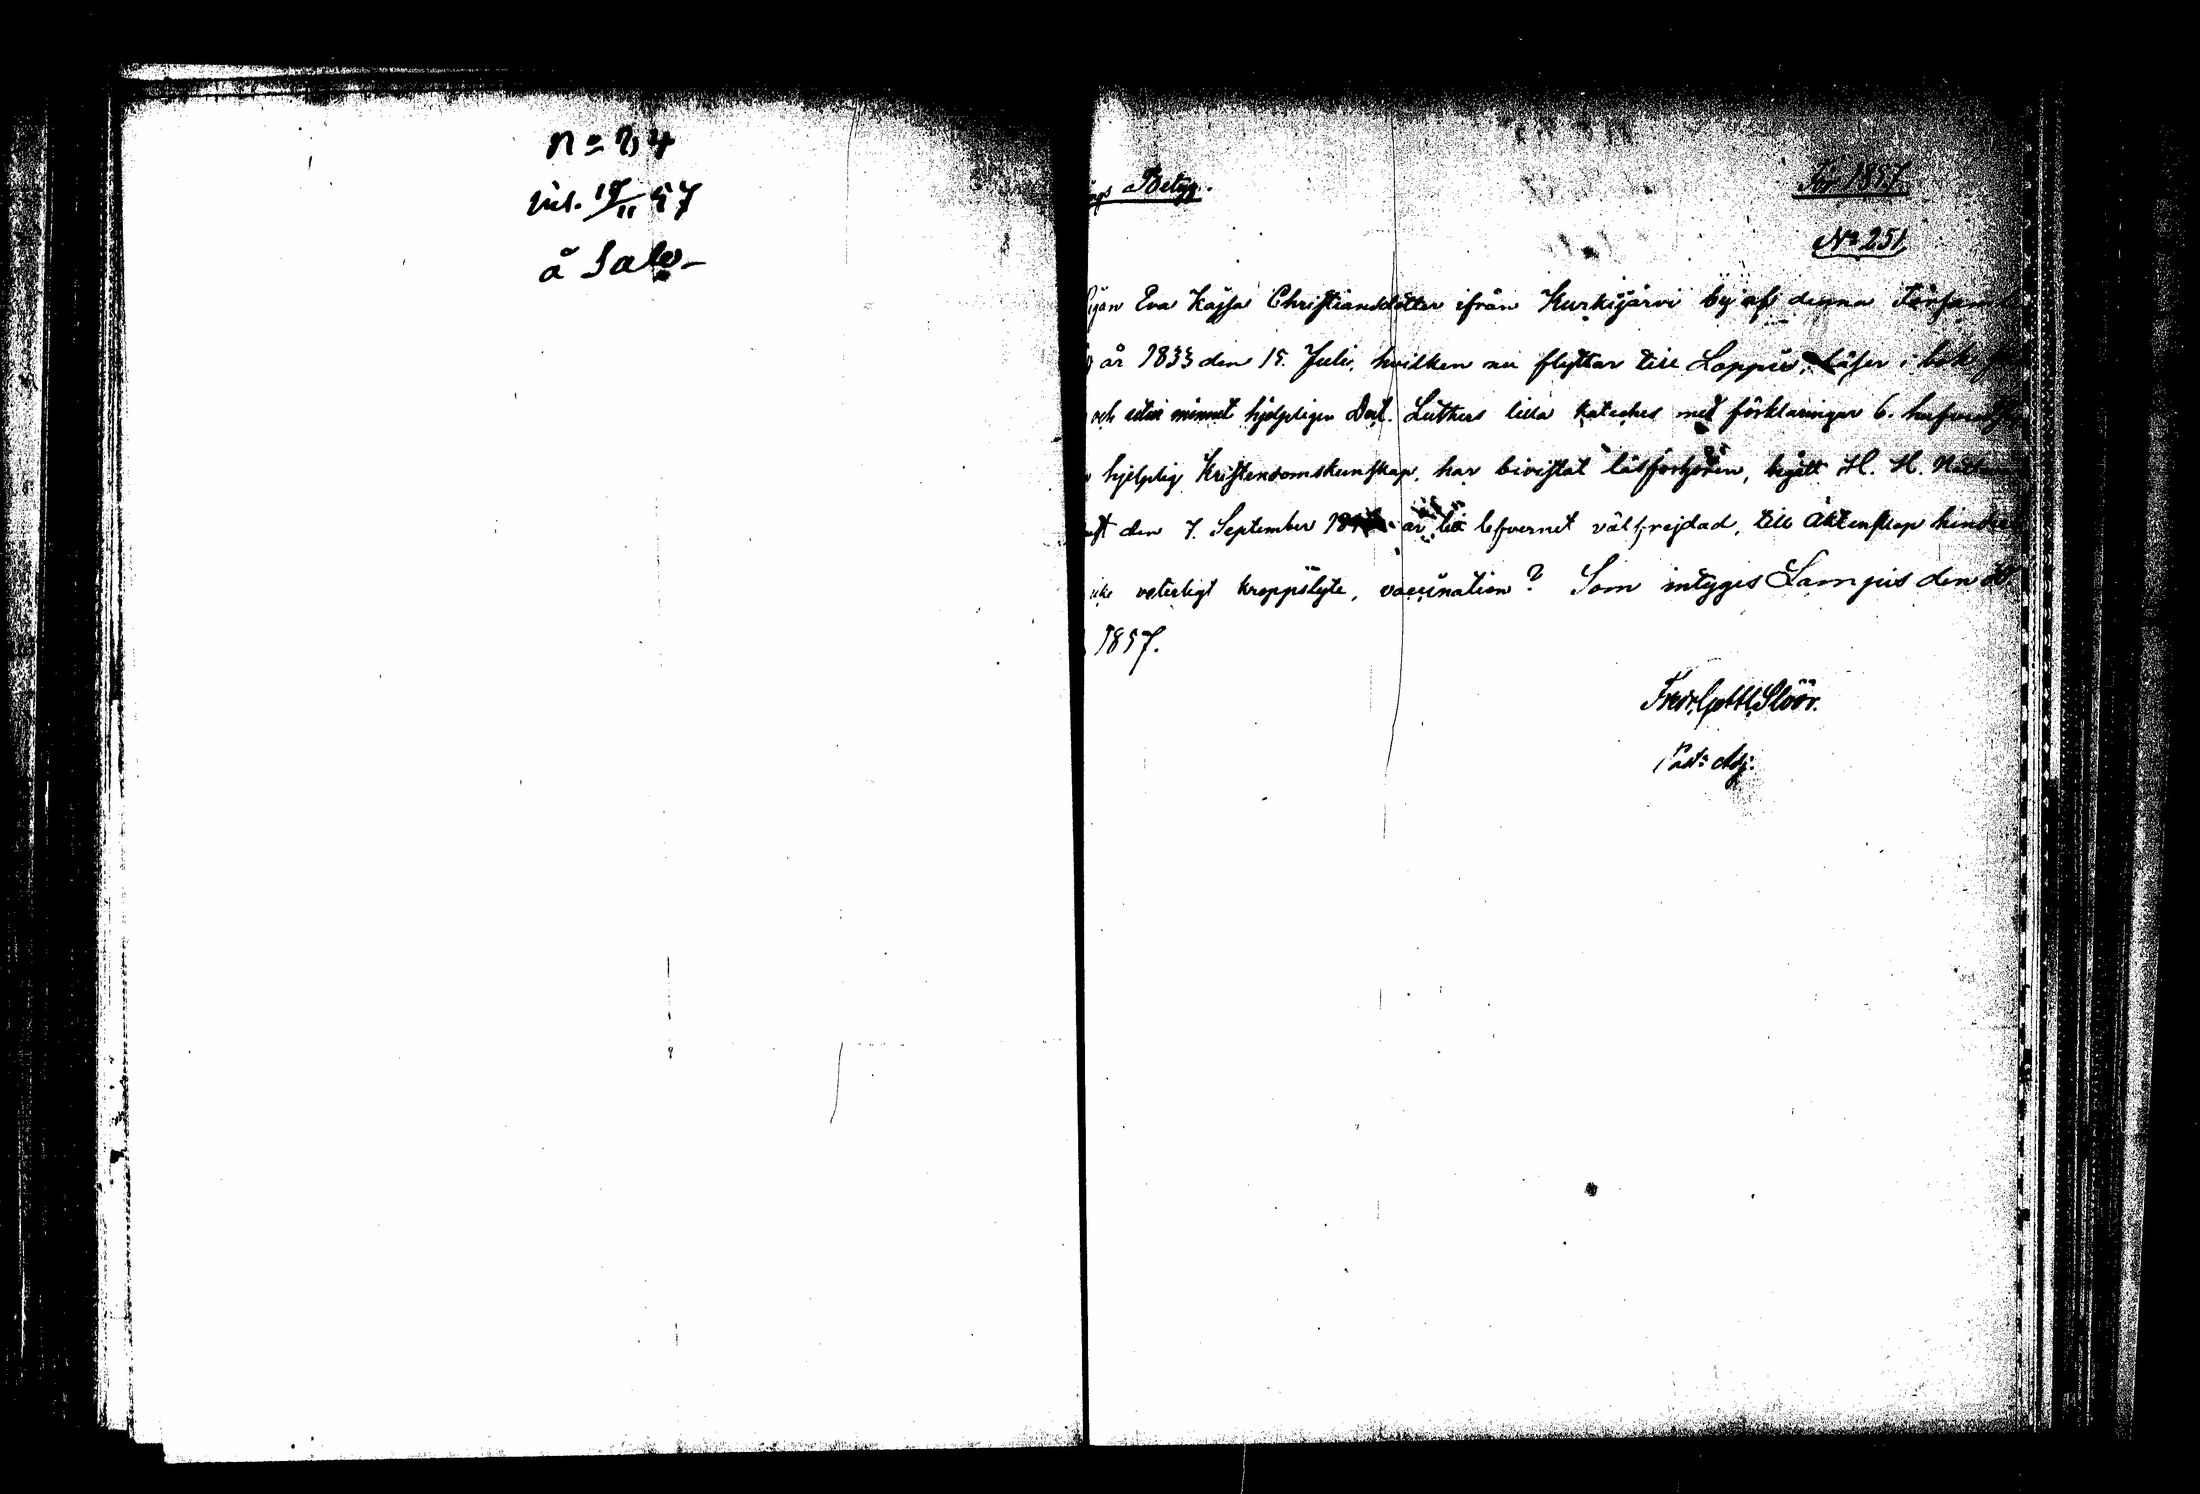 n=84
inl. 19/11 57
å Salo-
ngs Betyg.
För 1857.
No 251.
Pigan Eva Kajsa Christiansdotter ifrån Kurkijärvi by af denna Församl
år 1833 den 15. Juli, hvilken nu flyttar till Loppis, läser i bok
och utur minnet hjelpligen Doct. Luthers lilla kateches med förklaringar 6. hufvud
hjelplig Kristendomskunskap, har bivistat läsförhören, begått H. H. Nattvard
den 7. September är till lefvernet välfrejdad, till Äktenskap hinders
icke veterligt kroppslyte, vaccination? Som intygas Lampis den
1857.
Fredr. Gotthl. Slöör.
Past: Adj: